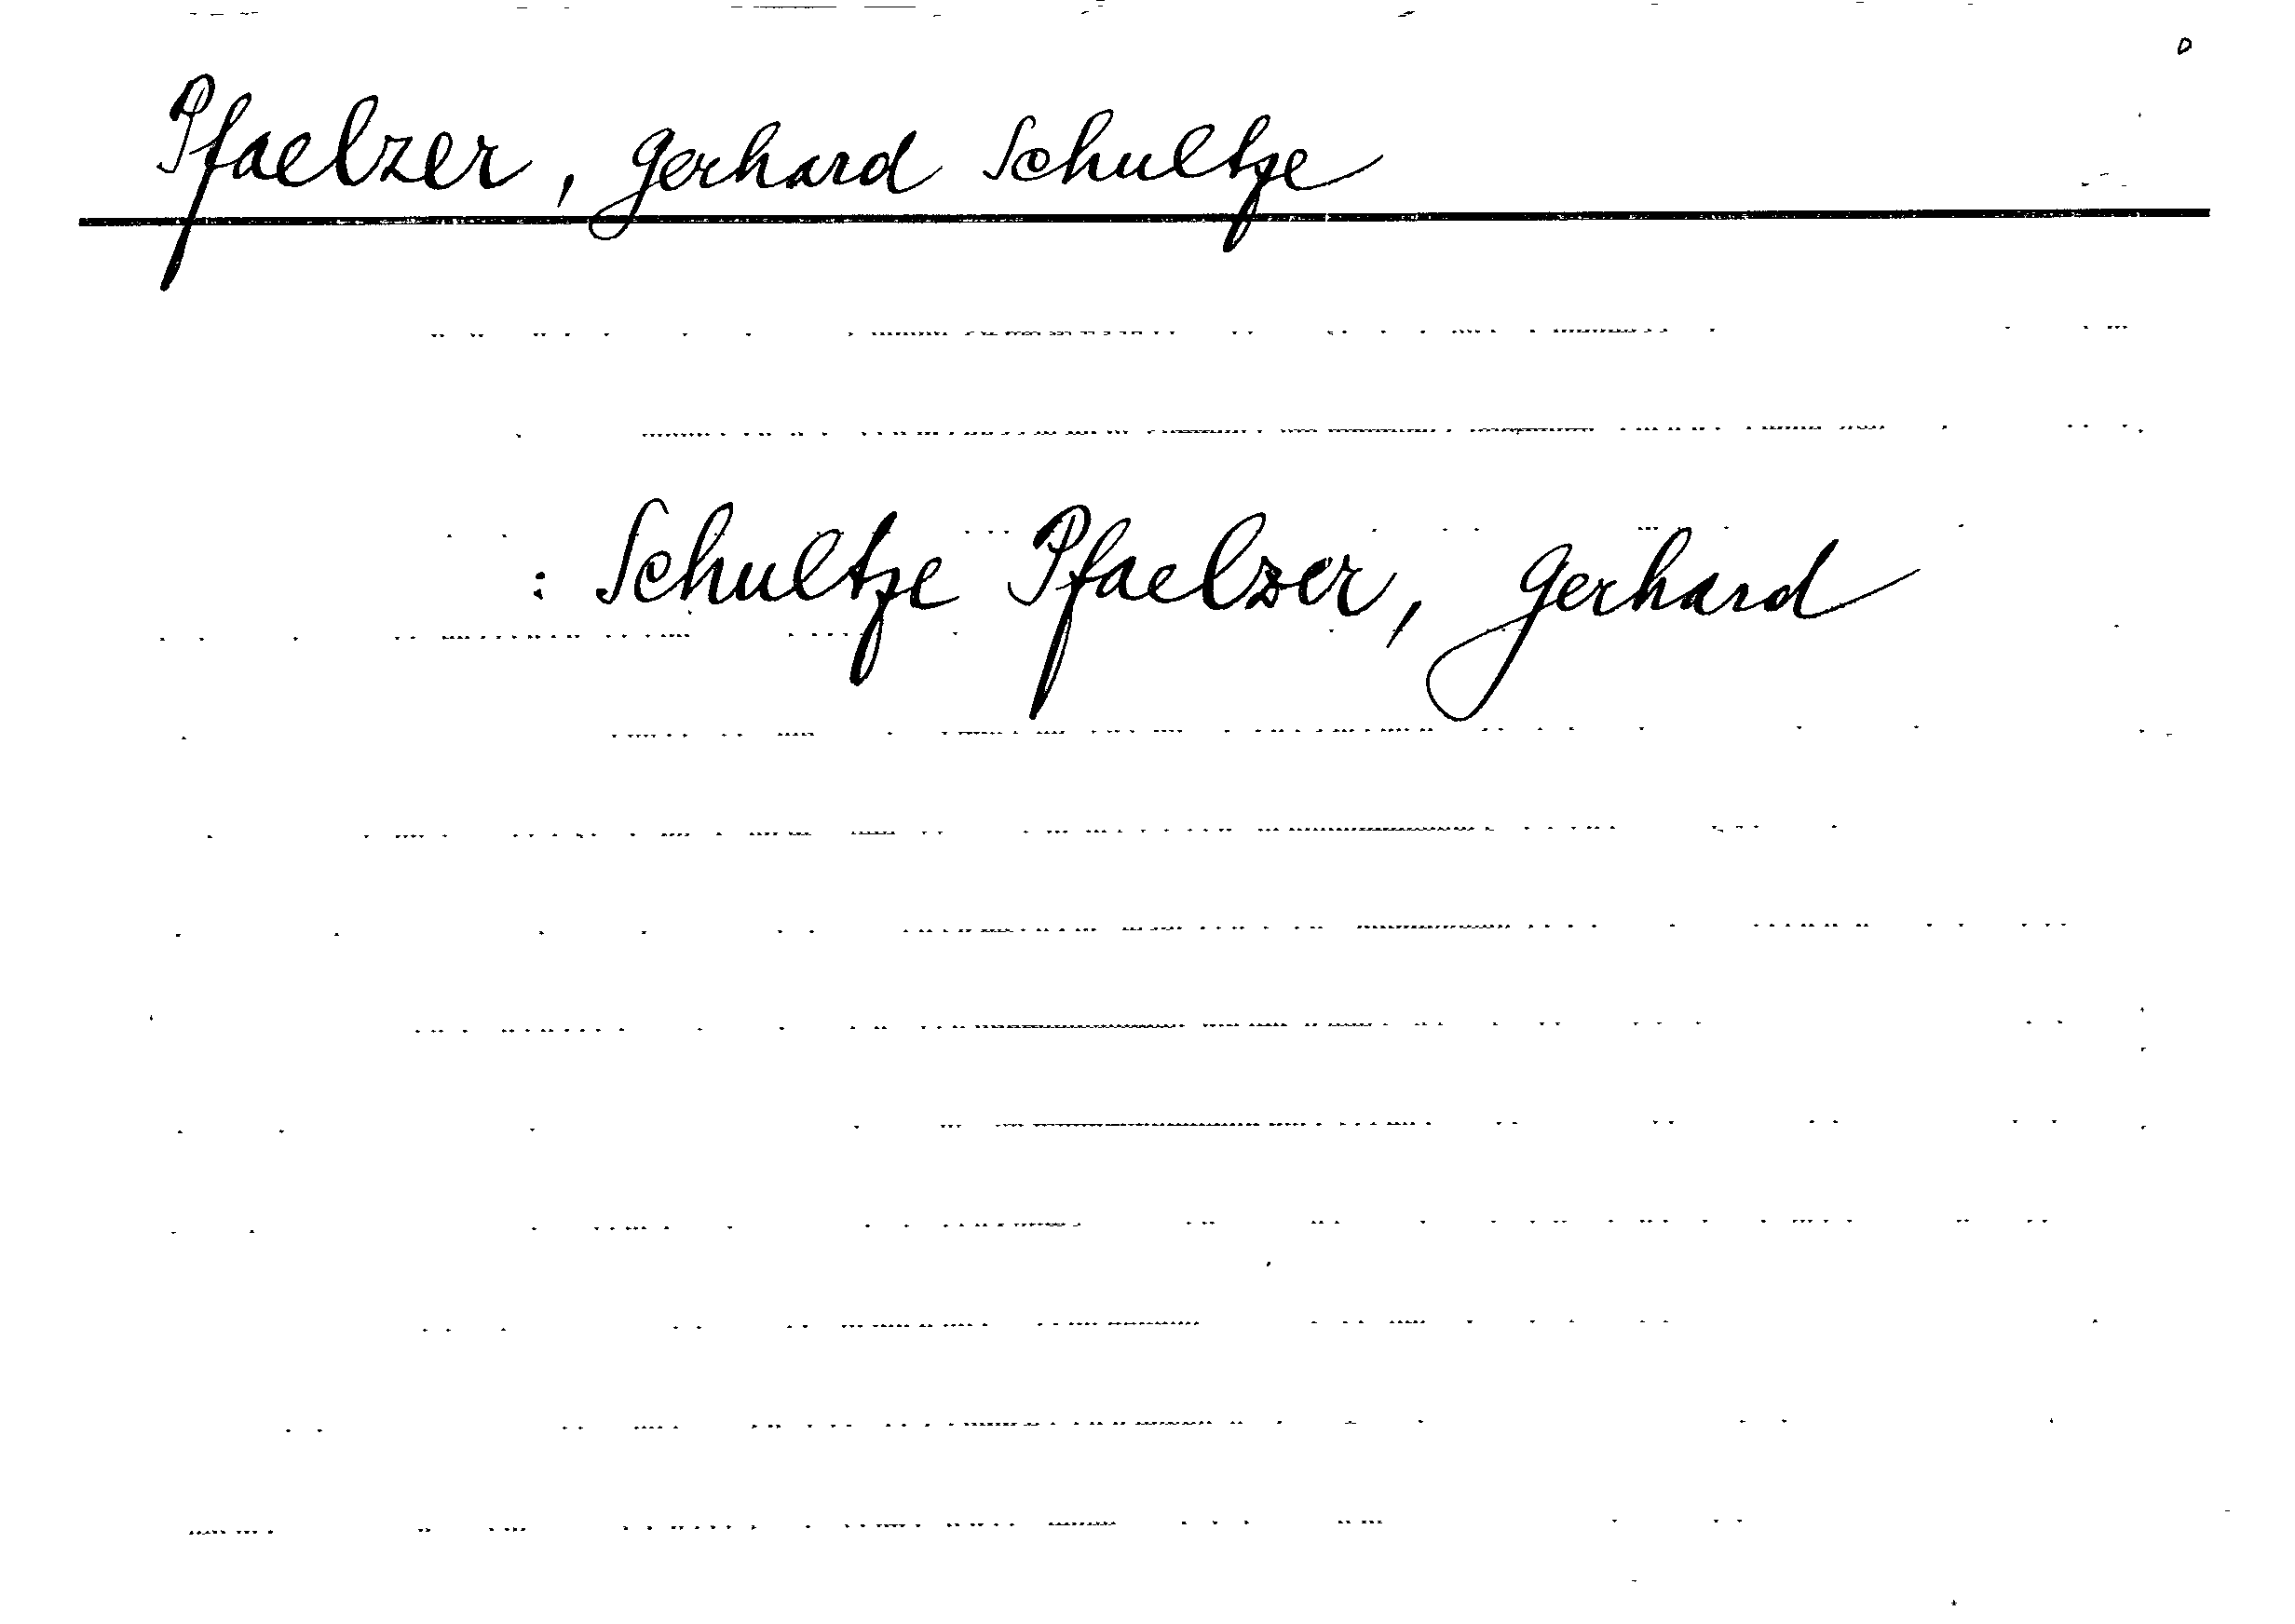 Pfaelzer, Gerhard Schultze
: Schultze Pfaelzer, Gerhard